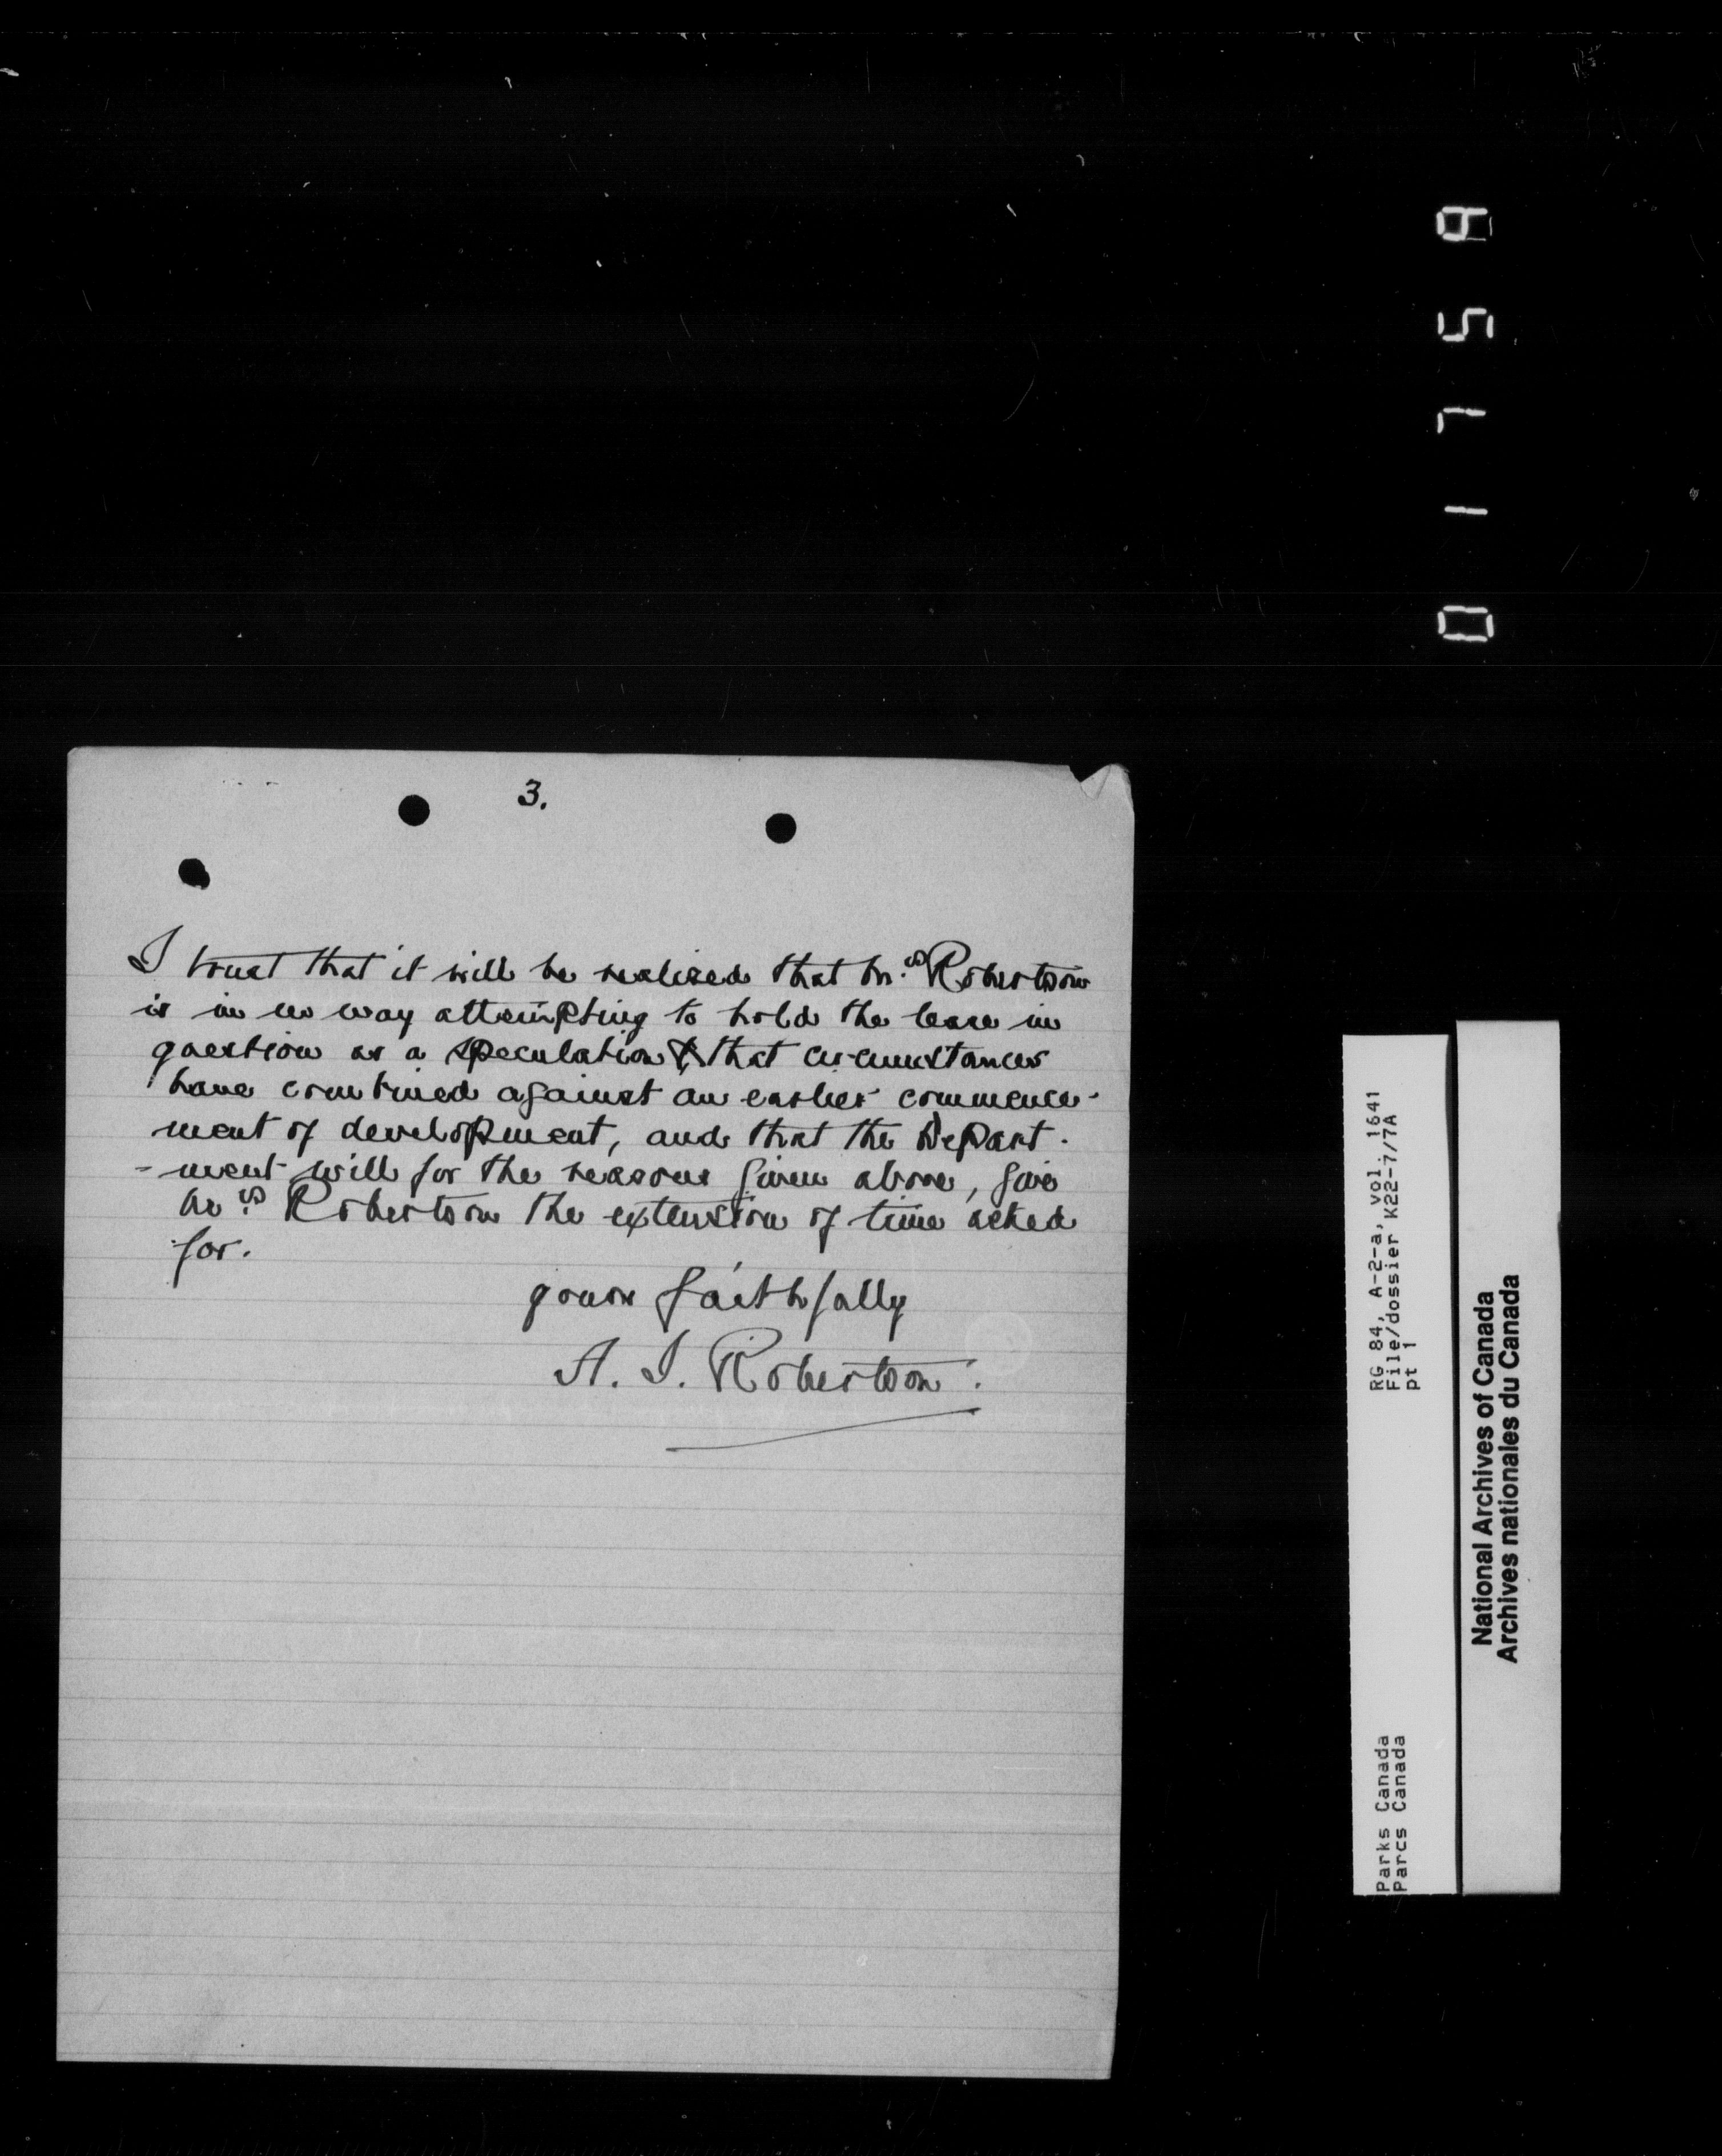 3.
I trust that it will be realized that Mrs Robertson
is in no way attempting to hold the lease in
question as a speculation & that circumstances
have combined against an earlier commence-
ment of development, and that the Depart-
-ment will for the reasons given above, give
Mrs Robertson the extension of time asked
for.
yours faithfully
A. I. Robertson.
RG 84, A-2-a, vol. 1641
File/dossier K22-7/7A
pt 1
Parks Canada
Parcs Canada
National Archives of Canada
Archives nationales du Canada